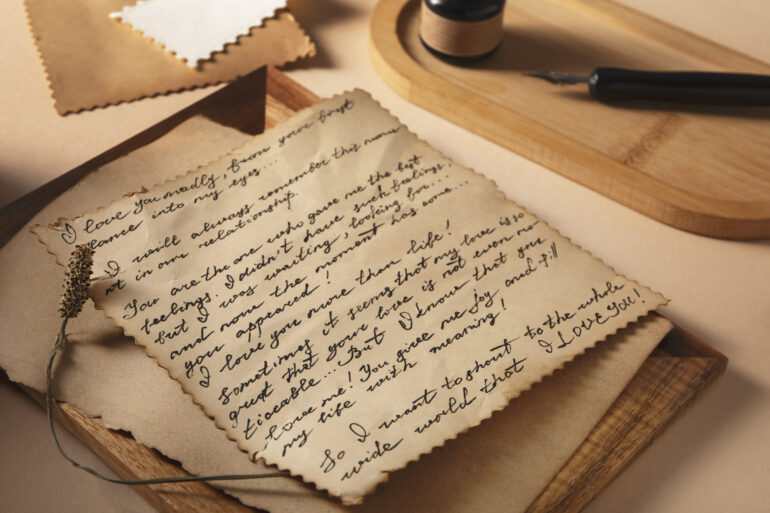 I love you madly, from your first
glance into my eyes...
I will always remember this mome
nt in our relationship.
You are the one who gave me the best
feelings. I didn't have such feelings...
but I was waiting, looking for...
and now the moment has come...
you appeared!
I love you more than life!
Sometimes it seems that my love is so
great that your love is not even no
ticeable... But I know that you
love me! You give me joy and fill
my life with meaning!
So I want to shout to the whole
wide world that I LOVE YOU!